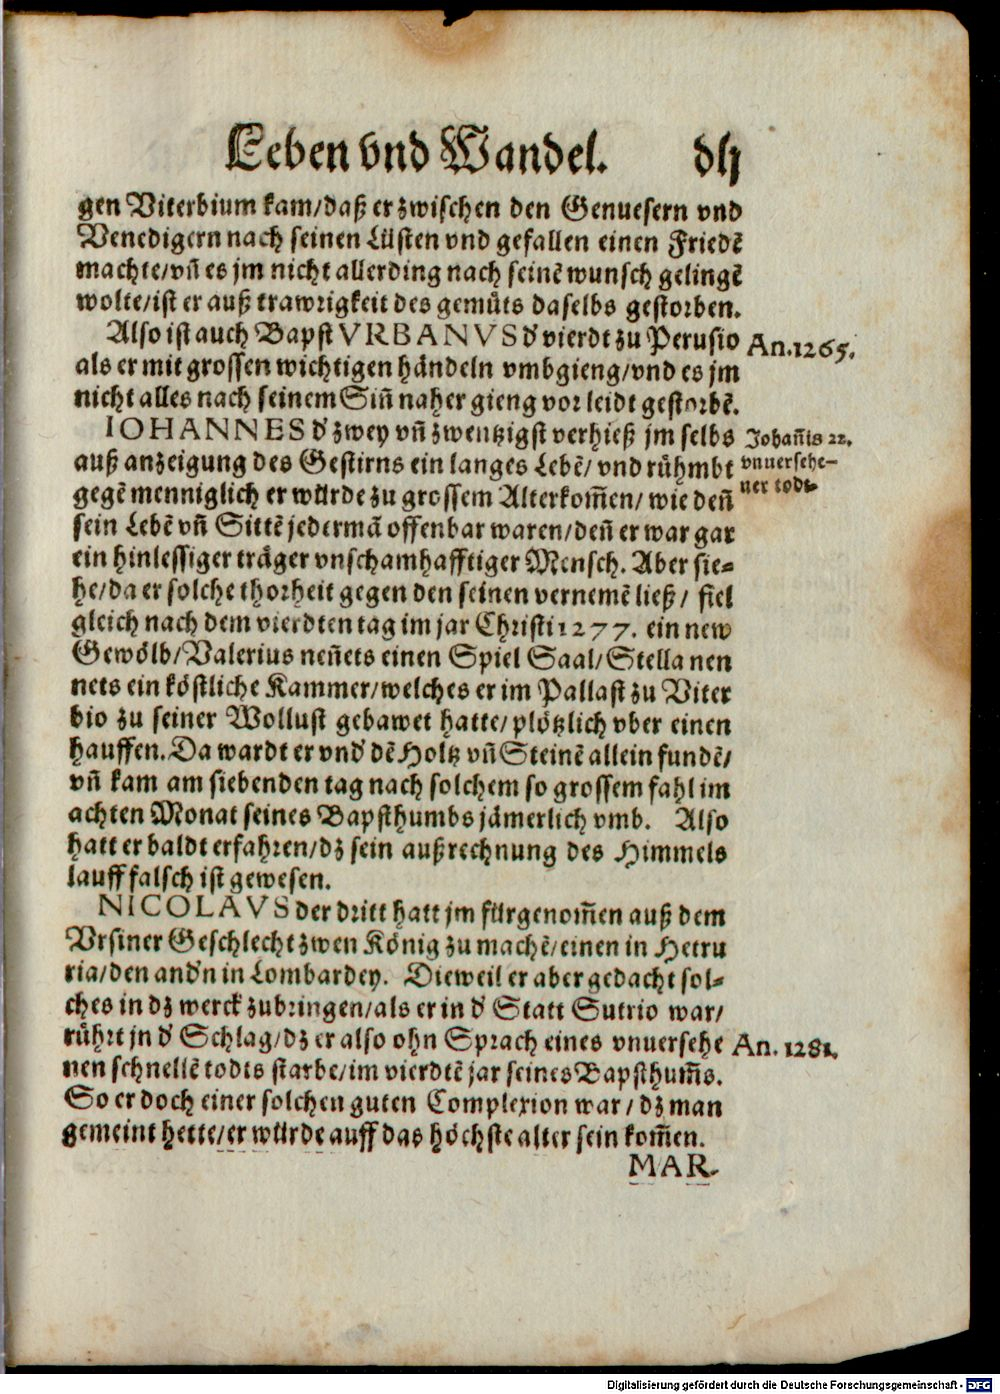 Leben vnd Wandel. dlj
gen Viterbium kam/daß er zwischen den Genuesern vnd
Venedigern nach seinen Lüsten vnd gefallen einen Friedē
machte/vn̄ es jm nicht allerding nach seinē wunsch gelingē
wolte/ist er auß trawrigkeit des gemüts daselbs gestorben.
Also ist auch Bapst VRBANVS d' vierdt zu Perusio
An. 1265.
als er mit grossen wichtigen händeln vmbgieng/vnd es jm
nicht alles nach seinem Sin̄ naher gieng vor leidt gestorbē.
IOHANNES d' zwey vn̄ zwentzigst verhieß jm selbs
Johan̄is 22.
auß anzeigung des Gestirns ein langes Lebē/ vnd rühmbt
vnuersehe-
gegē menniglich er würde zu grossem Alter kom̄en/ wie den̄
ner todt
sein Lebē vn̄ Sittē jedermā offenbar waren/den̄ er war gar
ein hinlessiger träger vnschamhafftiger Mensch. Aber sie-
he/da er solche thorheit gegen den seinen vernemē ließ/ fiel
gleich nach dem vierdten tag im jar Christi 1277. ein new
Gewölb/Valerius nen̄ets einen Spiel Saal/Stella nen
nets ein köstliche Kammer/welches er im Pallast zu Viter
bio zu seiner Wollust gebawet hatte/plötzlich vber einen
hauffen. Da wardt er vnd' dē Holtz vn̄ Steinē allein fundē/
vn̄ kam am siebenden tag nach solchem so grossem fahl im
achten Monat seines Bapsthumbs jämerlich vmb. Also
hatt er baldt erfahren/dz sein außrechnung des Himmels
lauff falsch ist gewesen.
NICOLAVS der dritt hatt jm fürgenom̄en auß dem
Vrsiner Geschlecht zwen König zu machē/einen in Hetru
ria/den and'n in Lombardey. Dieweil er aber gedacht sol-
ches in dz werck zubringen/als er in d' Statt Sutrio war/
rührt jn d' Schlag/dz er also ohn Sprach eines vnuersehe
An. 1281.
nen schnellē todts starbe/im vierdtē jar seines Bapsthum̄s.
So er doch einer solchen guten Complexion war/ dz man
gemeint hette/er würde auff das höchste alter sein kom̄en.
MAR-
Digitalisierung gefördert durch die Deutsche Forschungsgemeinschaft - DFG